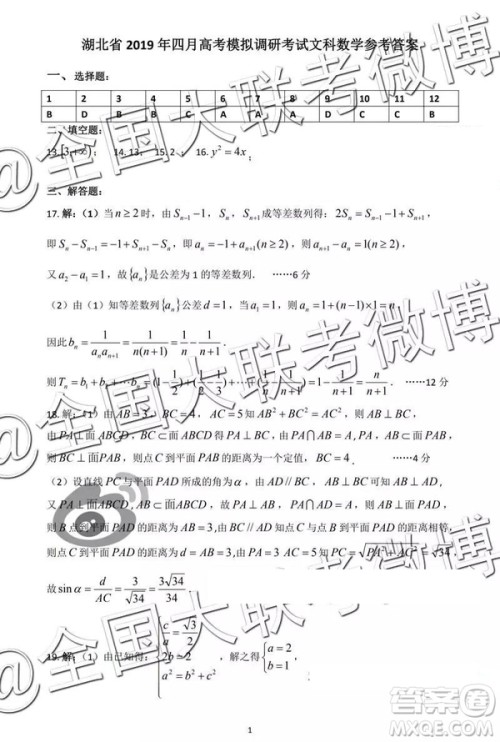 湖北省 2019 年四月高考模拟调研考试文科数学参考答案
一、 选择题:
1 2 3 4 5 6 7 8 9 10 11 12
B D B C A A A D
二、填空题:
13.[3,+∞); 14. 13; 15. 2 ; 16. y² = 4x ;
三、解答题:
17. 解:(1)当 n ≥ 2 时, 由 Sₙ₋₁ − 1, Sₙ, Sₙ₊₁ 成等差数列得: 2Sₙ = Sₙ₋₁ − 1 + Sₙ₊₁,
即 Sₙ − Sₙ₋₁ = −1 + Sₙ₊₁ − Sₙ, 即 aₙ = −1 + aₙ₊₁ (n ≥ 2), 则 aₙ₊₁ − aₙ = 1(n ≥ 2),
又 a₂ − a₁ = 1, 故{aₙ}是公差为 1 的等差数列. ……6 分
(2)由(1)知等差数列{aₙ}公差 d = 1, 当 a₁ = 1, 则 aₙ = 1 + (n − 1) × 1 = n.
因此 bₙ = 1/(aₙaₙ₊₁) = 1/(n(n+1)) = 1/n − 1/(n+1).
则 Tₙ = b₁ + b₂ + ⋯ bₙ = ……12 分
18. 解:(1)由 AB = 3, BC = 4, AC = 5 知 AB² + BC² = AC², 则 AB ⊥ BC,
由 PA ⊥ 面 ABCD, BC ⊂ 面 ABCD 得 PA ⊥ BC, 由 PA ∩ AB = A, PA, AB ⊂ 面 PAB,
则 BC ⊥ 面 PAB, 则点 C 到平面 PAB 的距离为一个定值, BC = 4. ……4 分
(2)设直线 PC 与平面 PAD 所成的角为 α, 由 AD // BC, AB ⊥ BC, 知 AB ⊥ AD,
又 PA ⊥ 面 ABCD, AB ⊂ 面 ABCD, 则 PA ⊥ AB, PA ∩ AD = A, 则 AB ⊥ 面 PAD,
则 B 点到平面 PAD 的距离为 AB = 3, 由 BC // AD 知 B 点与 C 点到平面 PAD 的距离相等,
则 C 到平面 PAD 的距离为 d = 3, 由 PA ⊥ 面 ABCD 得 PA ⊥ AC, 知 PC = = √34,
故 sin α = d/AC = 3/√34 = 3√34/34.
19. 解:(1)由已知得: { c/a = √3/2 2b = 2 a² = b² + c² , 解之得 { a = 2 b = 1 ,
1
@全国大联考微博
@全国大联考微博
答案圈
MXQE.COM